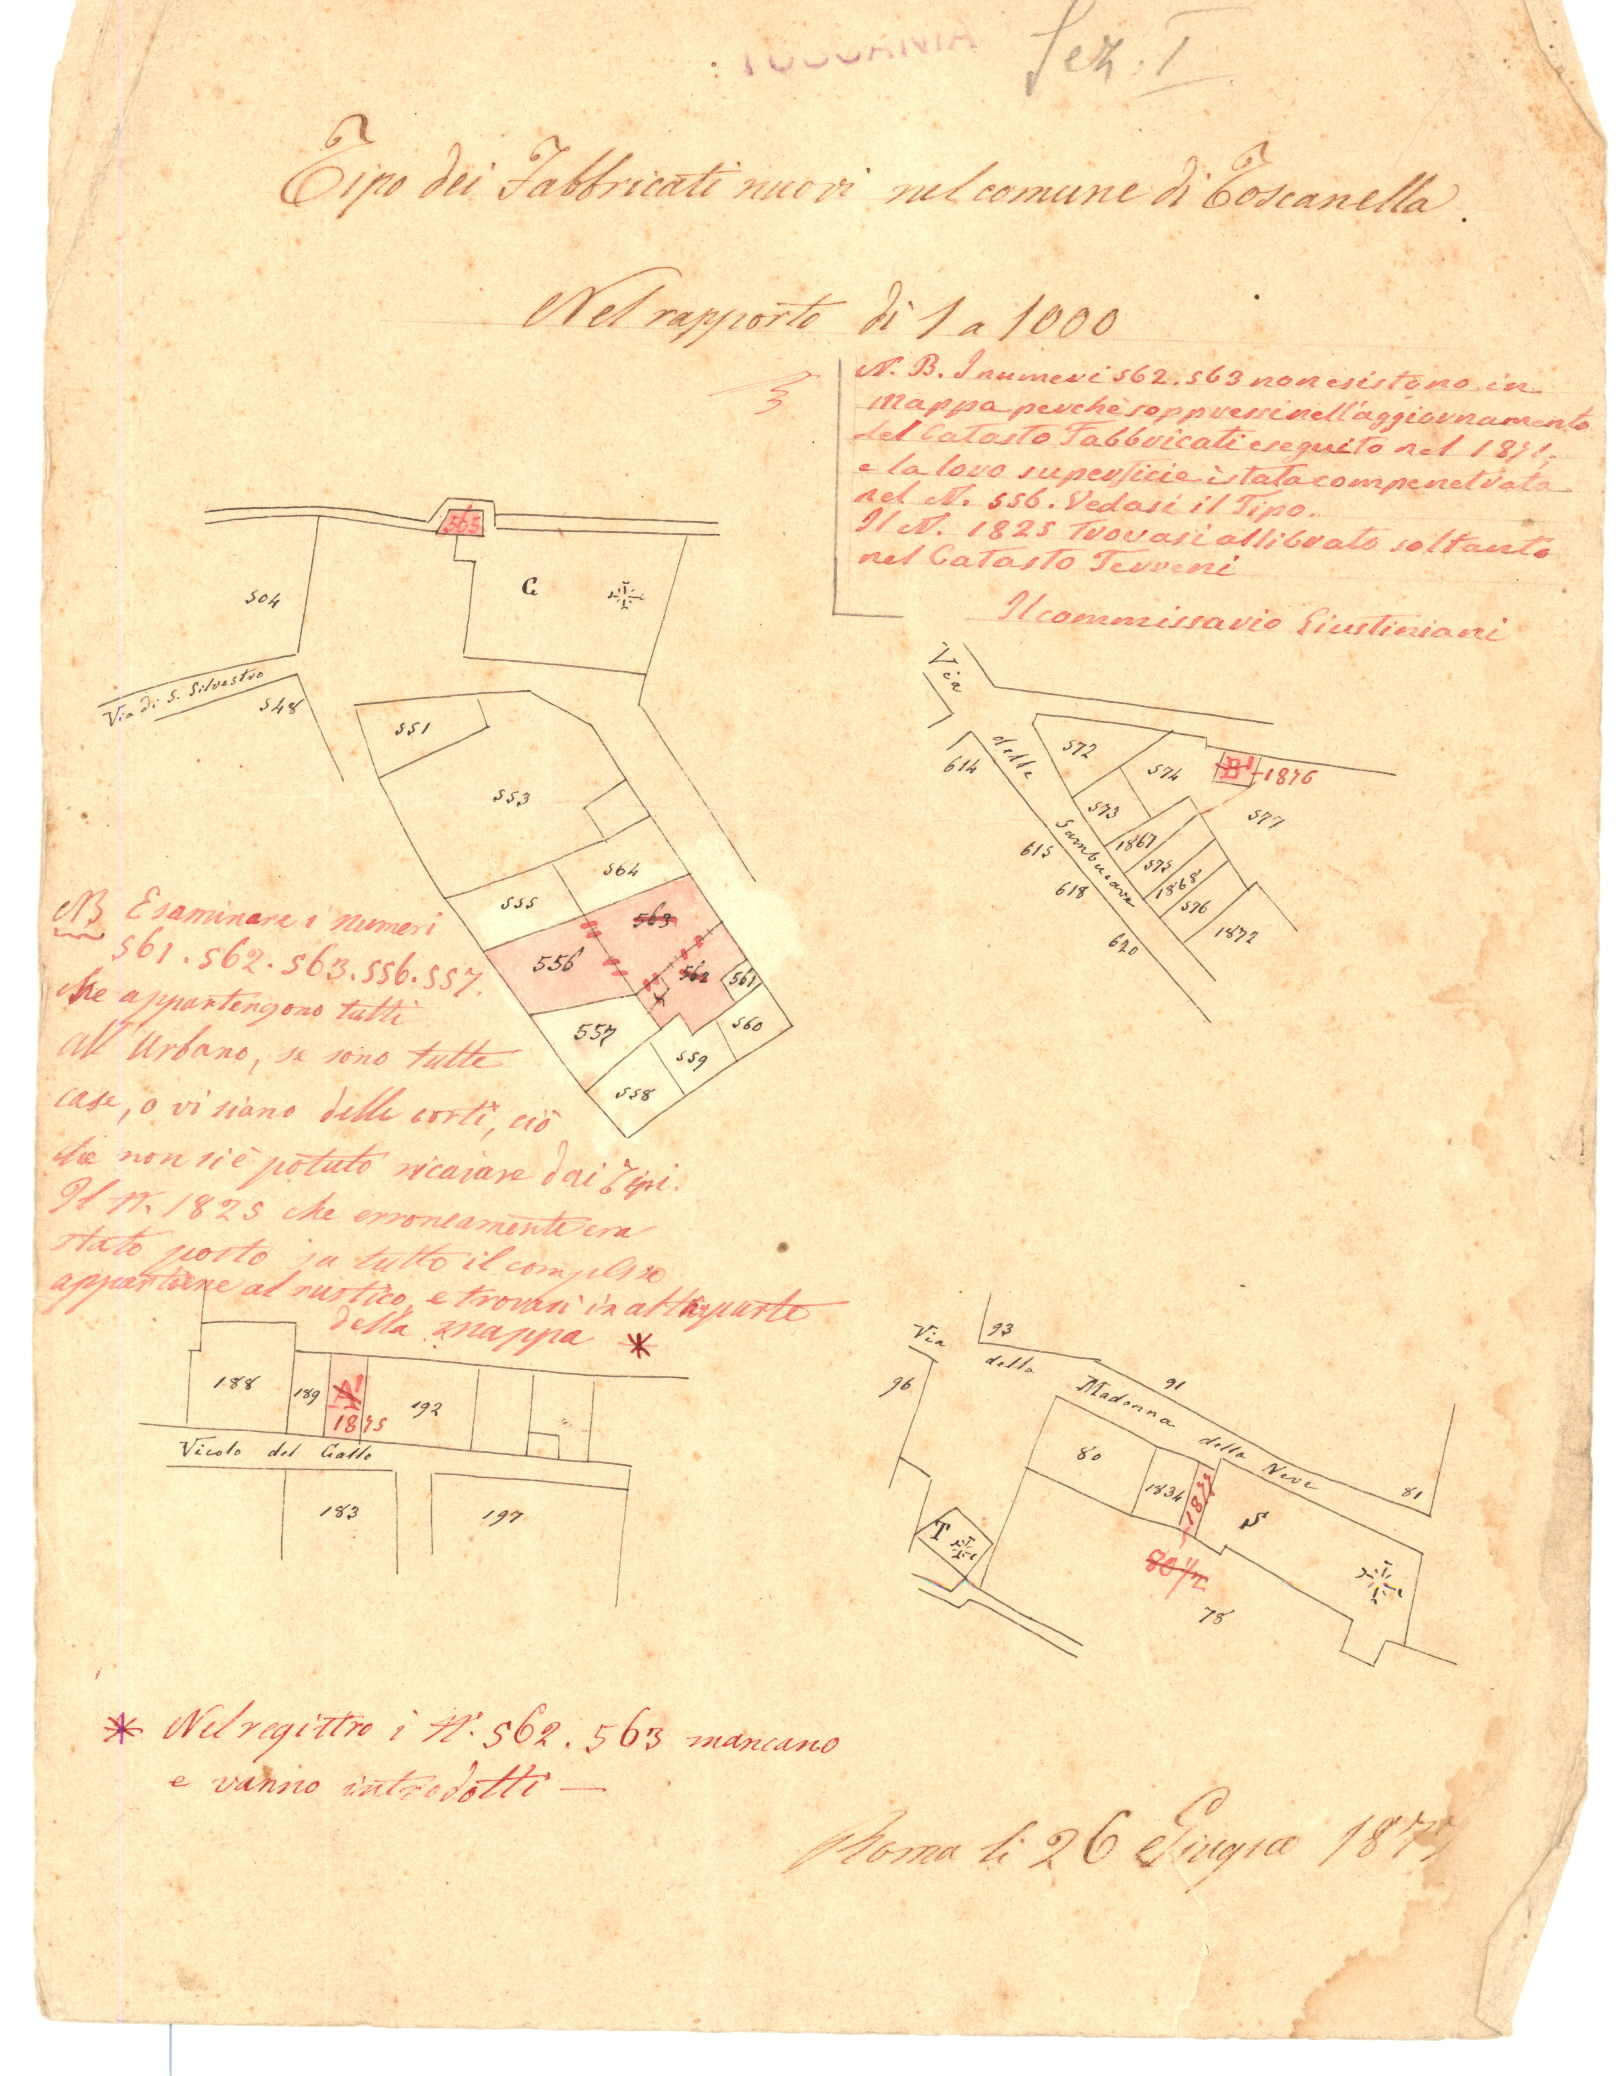 TOSCANIA
Sez. I
Tipo dei Fabbricati nuovi nel comune di Toscanella.
Nel rapporto di 1 a 1000
N. B. I numeri 562. 563 non esistono in
mappa perchè soppressi nell'aggiornamento
del Catasto Fabbricati eseguito nel 1871,
e la loro superficie è stata compenetrata
nel N. 556. Vedasi il Tipo.
Il N. 1825 trovasi allibrato soltanto
nel Catasto Terreni
Il commissario Giustiniani
565
504
G
Via di S. Silvestro
548
551
553
564
555
563
556
562
561
557
560
559
558
Via delle Sambucare
572
574
B' 1876
573
577
614
1867
615
575
1868
618
576
1872
620
NB Esaminare i numeri
561. 562. 563. 556. 557.
che appartengono tutti
all' Urbano, se sono tutte
case, o vi siano delle corti, ciò
che non si è potuto ricavare dai Tipi.
Il N. 1825 che erroneamente era
stato posto su tutto il complesso
appartiene al rustico, e trovasi in altra parte
della mappa *
188
189
A'
1875
192
Vicolo del Gallo
183
197
Via della Madonna della Neve
93
96
91
80
1834
1877
81
S
T
80 1/2
78
* Nel registro i N.i 562. 563 mancano
e vanno introdotti —
Roma li 26 Giugno 1877